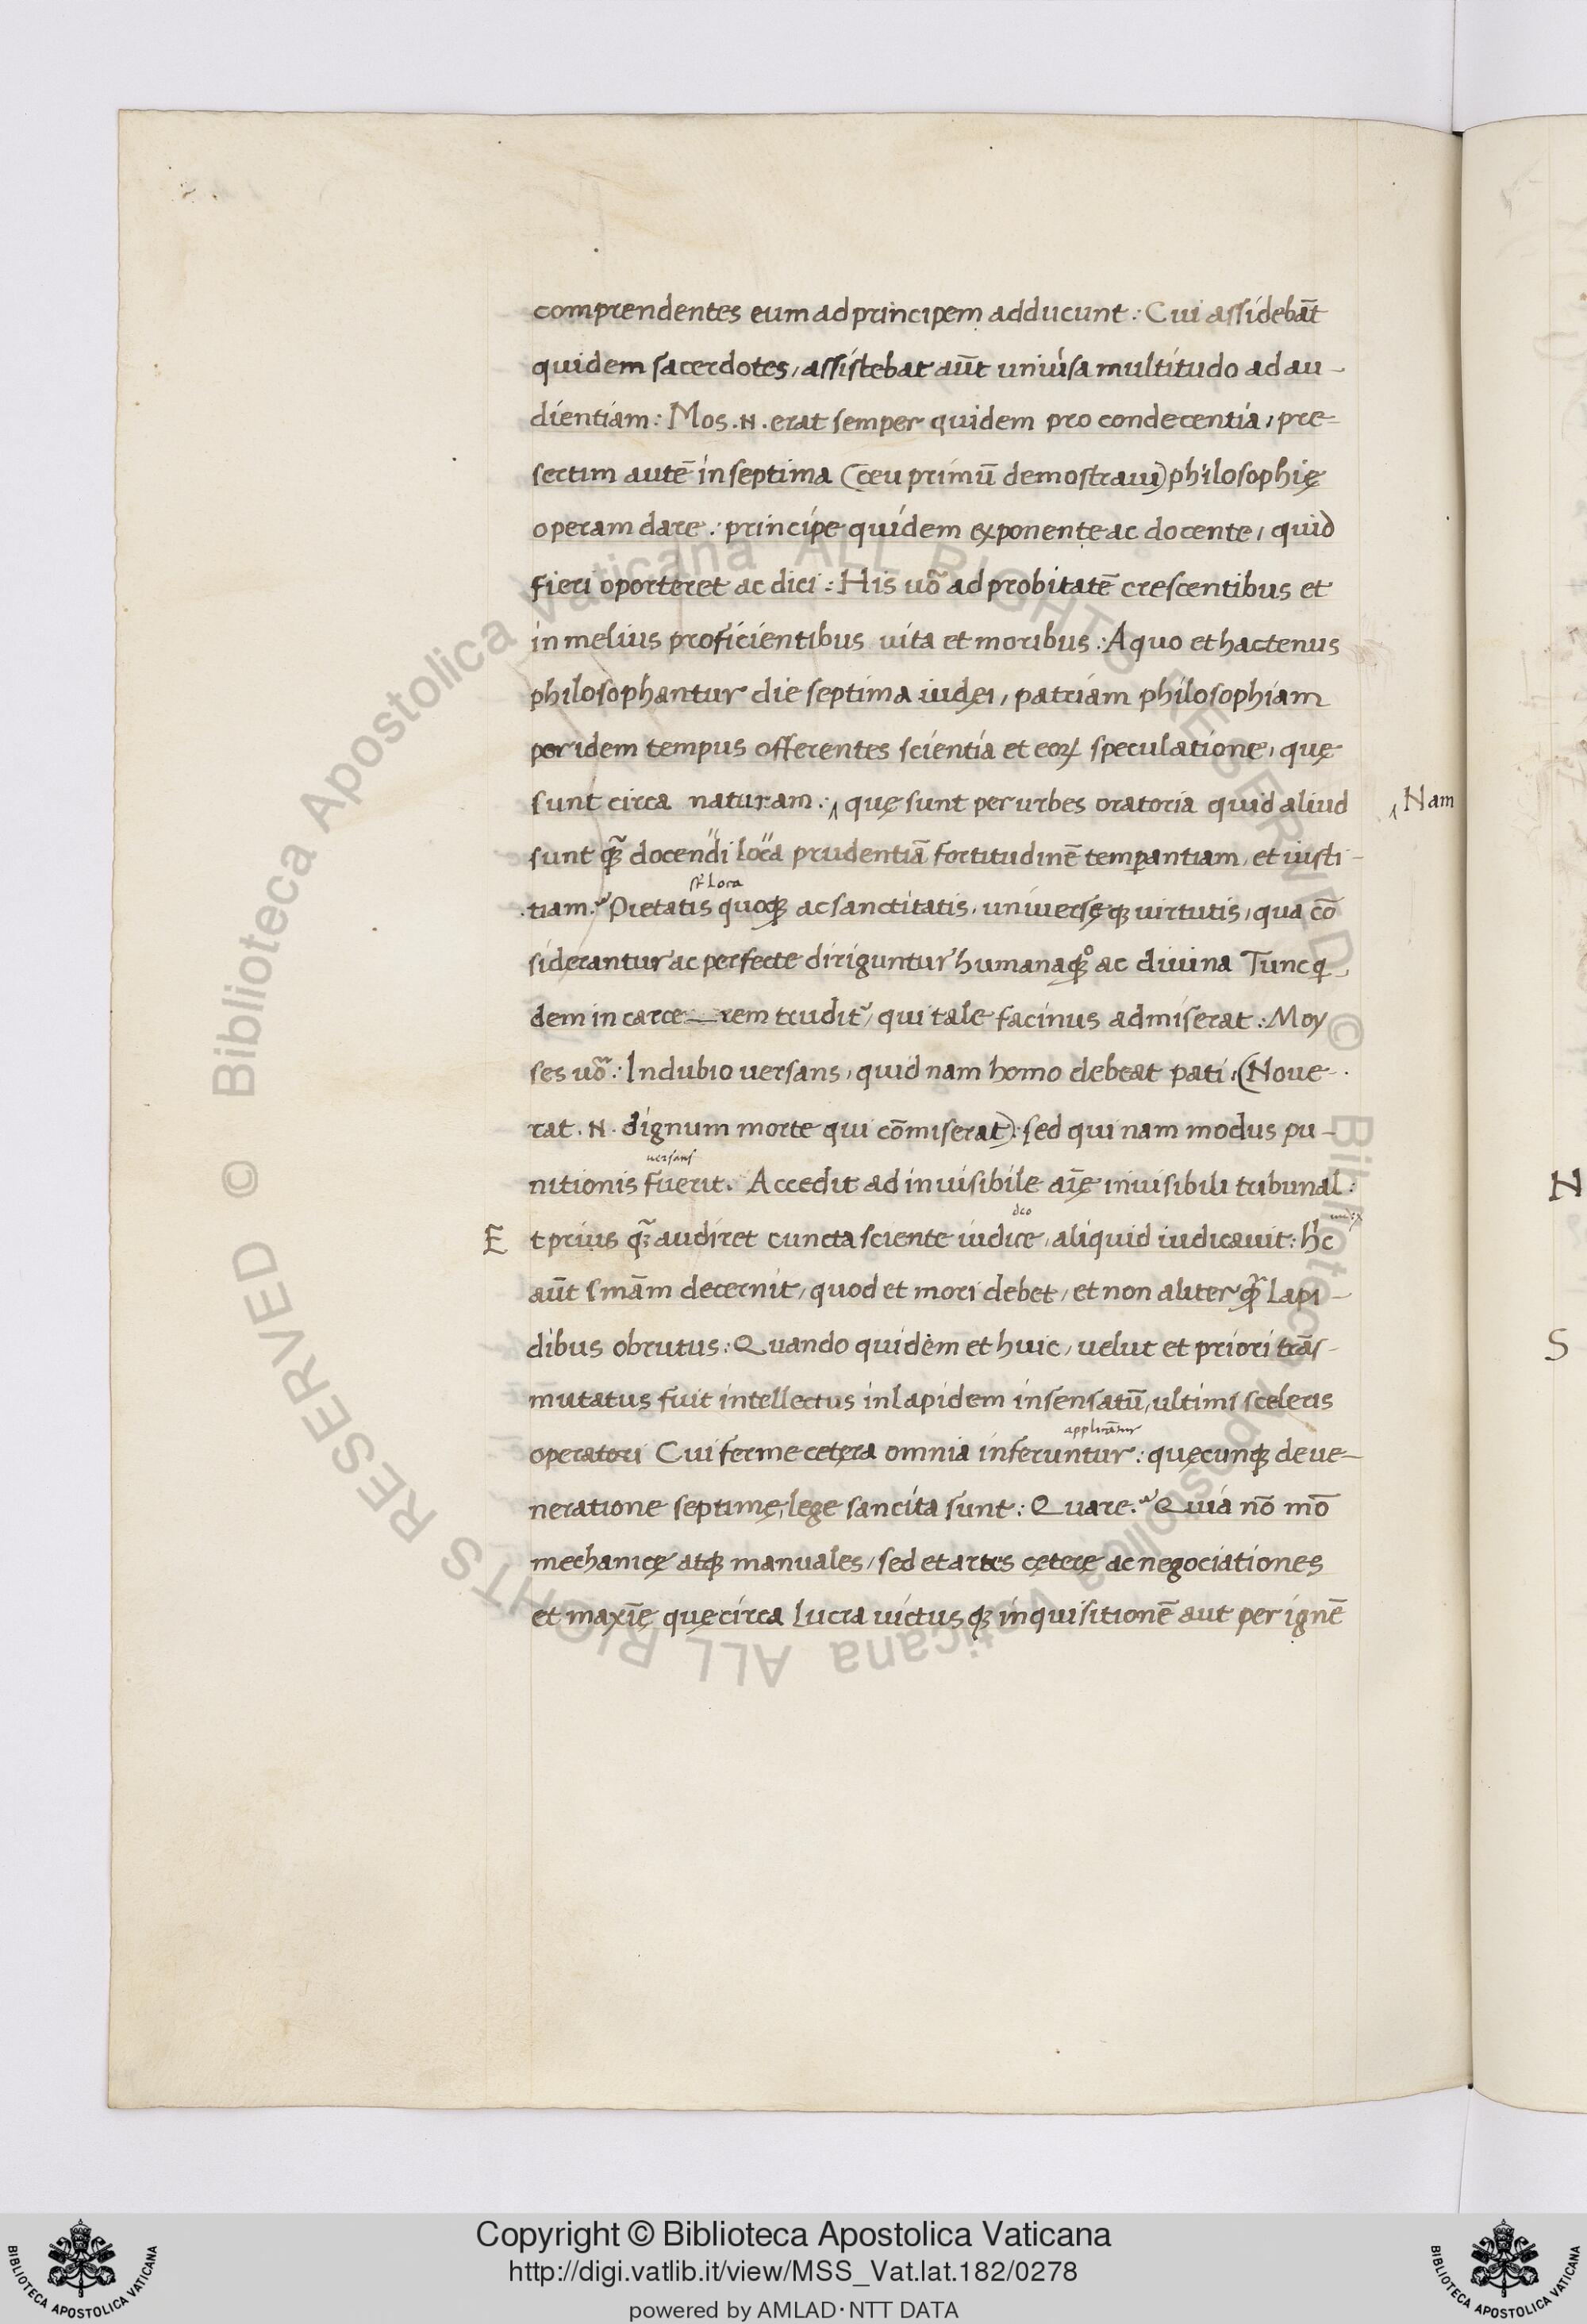 comprendentes eum ad principem adducunt: Cui assidebāt
quidem sacerdotes, assistebat aūt uniu'sa multitudo ad au-
dientiam: Mos .N. erat semper quidem pro condecentia, pre-
sertim autē in septima (ceu primū demostraui) philosophię
operam dare: principe quidem exponente ac docente, quid
fieri oporteret ac dici: His uō ad probitatē crescentibus et
in melius proficientibus uita et moribus: A quo et hactenus
philosophantur die septima iudęi, patriam philosophiam
per idem tempus offerentes scientia et eoꝝ speculatione, quę
sunt circa naturam: ‸ quę sunt per urbes oratoria quid aliud
‸ Nam
sunt ꝙ̄ docendi loca prudentiā fortitudinē temperantiam, et iusti-
st' loca
tiam? Pietatis quoqꝫ ac sanctitatis, uniuersęqꝫ uirtutis, qua cō
siderantur ac perfecte diriguntur humanaqꝫ ac diuina Tunc q
dem in carce—rem trudit', qui tale facinus admiserat: Moy
ses uō: In dubio uersans, quid nam homo debeat pati: (Noue-
rat .N. dignum morte qui cōmiserat): sed qui nam modus pu-
uersans
nitionis fuerit. Accedit ad inuisibile aīę inuisibili tribunal:
deo
E t prius qꝫ̄ audiret cuncta sciente iudice, aliquid iudicauit: hc
aūt smām decernit, quod et mori debet, et non aliter ꝙ̄ lapi-
dibus obrutus: Quando quidem et huic, uelut et priori trās-
mutatus fuit intellectus in lapidem insensatū, ultimi sceleris
applicātur
operatori Cui ferme cetera omnia inferuntur: quęcunqꝫ de ue-
neratione septimę, lege sancita sunt: Quare? Quia nō mō
mechanicę atqꝫ manuales, sed et artes cęterę ac negociationes
et maxīę quę circa lucra uictus qꝫ inquisitionē aut per ignē
N
S
Copyright © Biblioteca Apostolica Vaticana
http://digi.vatlib.it/view/MSS_Vat.lat.182/0278
powered by AMLAD·NTT DATA
BIBLIOTECA APOSTOLICA VATICANA
BIBLIOTECA APOSTOLICA VATICANA
© Biblioteca Apostolica Vaticana ALL RIGHTS RESERVED © Biblioteca Apostolica Vaticana ALL RIGHTS RESERVED